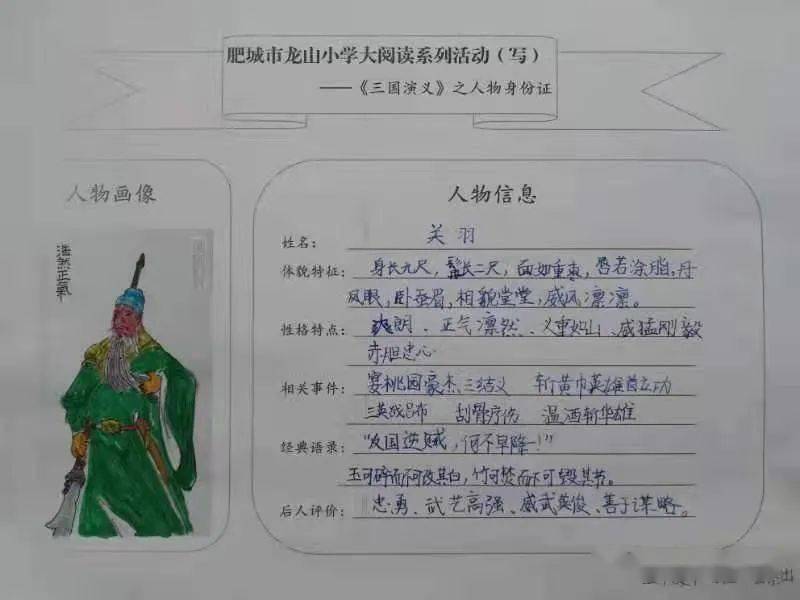 肥城市龙山小学大阅读系列活动（写）
——《三国演义》之人物身份证
人物画像
浩然正氣
人物信息
姓名： 关羽
体貌特征： 身长九尺，髯长二尺，面如重枣，唇若涂脂，丹
凤眼，卧蚕眉，相貌堂堂，威风凛凛。
性格特点： 爽朗、正气凛然、义重如山、威猛刚毅
赤胆忠心
相关事件： 宴桃园豪杰三结义 斩黄巾英雄首立功
三英战吕布 刮骨疗伤 温酒斩华雄
经典语录： “反国逆贼，何不早降！”
玉可碎而不可改其白，竹可焚而不可毁其节。
后人评价： 忠勇、武艺高强、威武英俊、善于谋略。